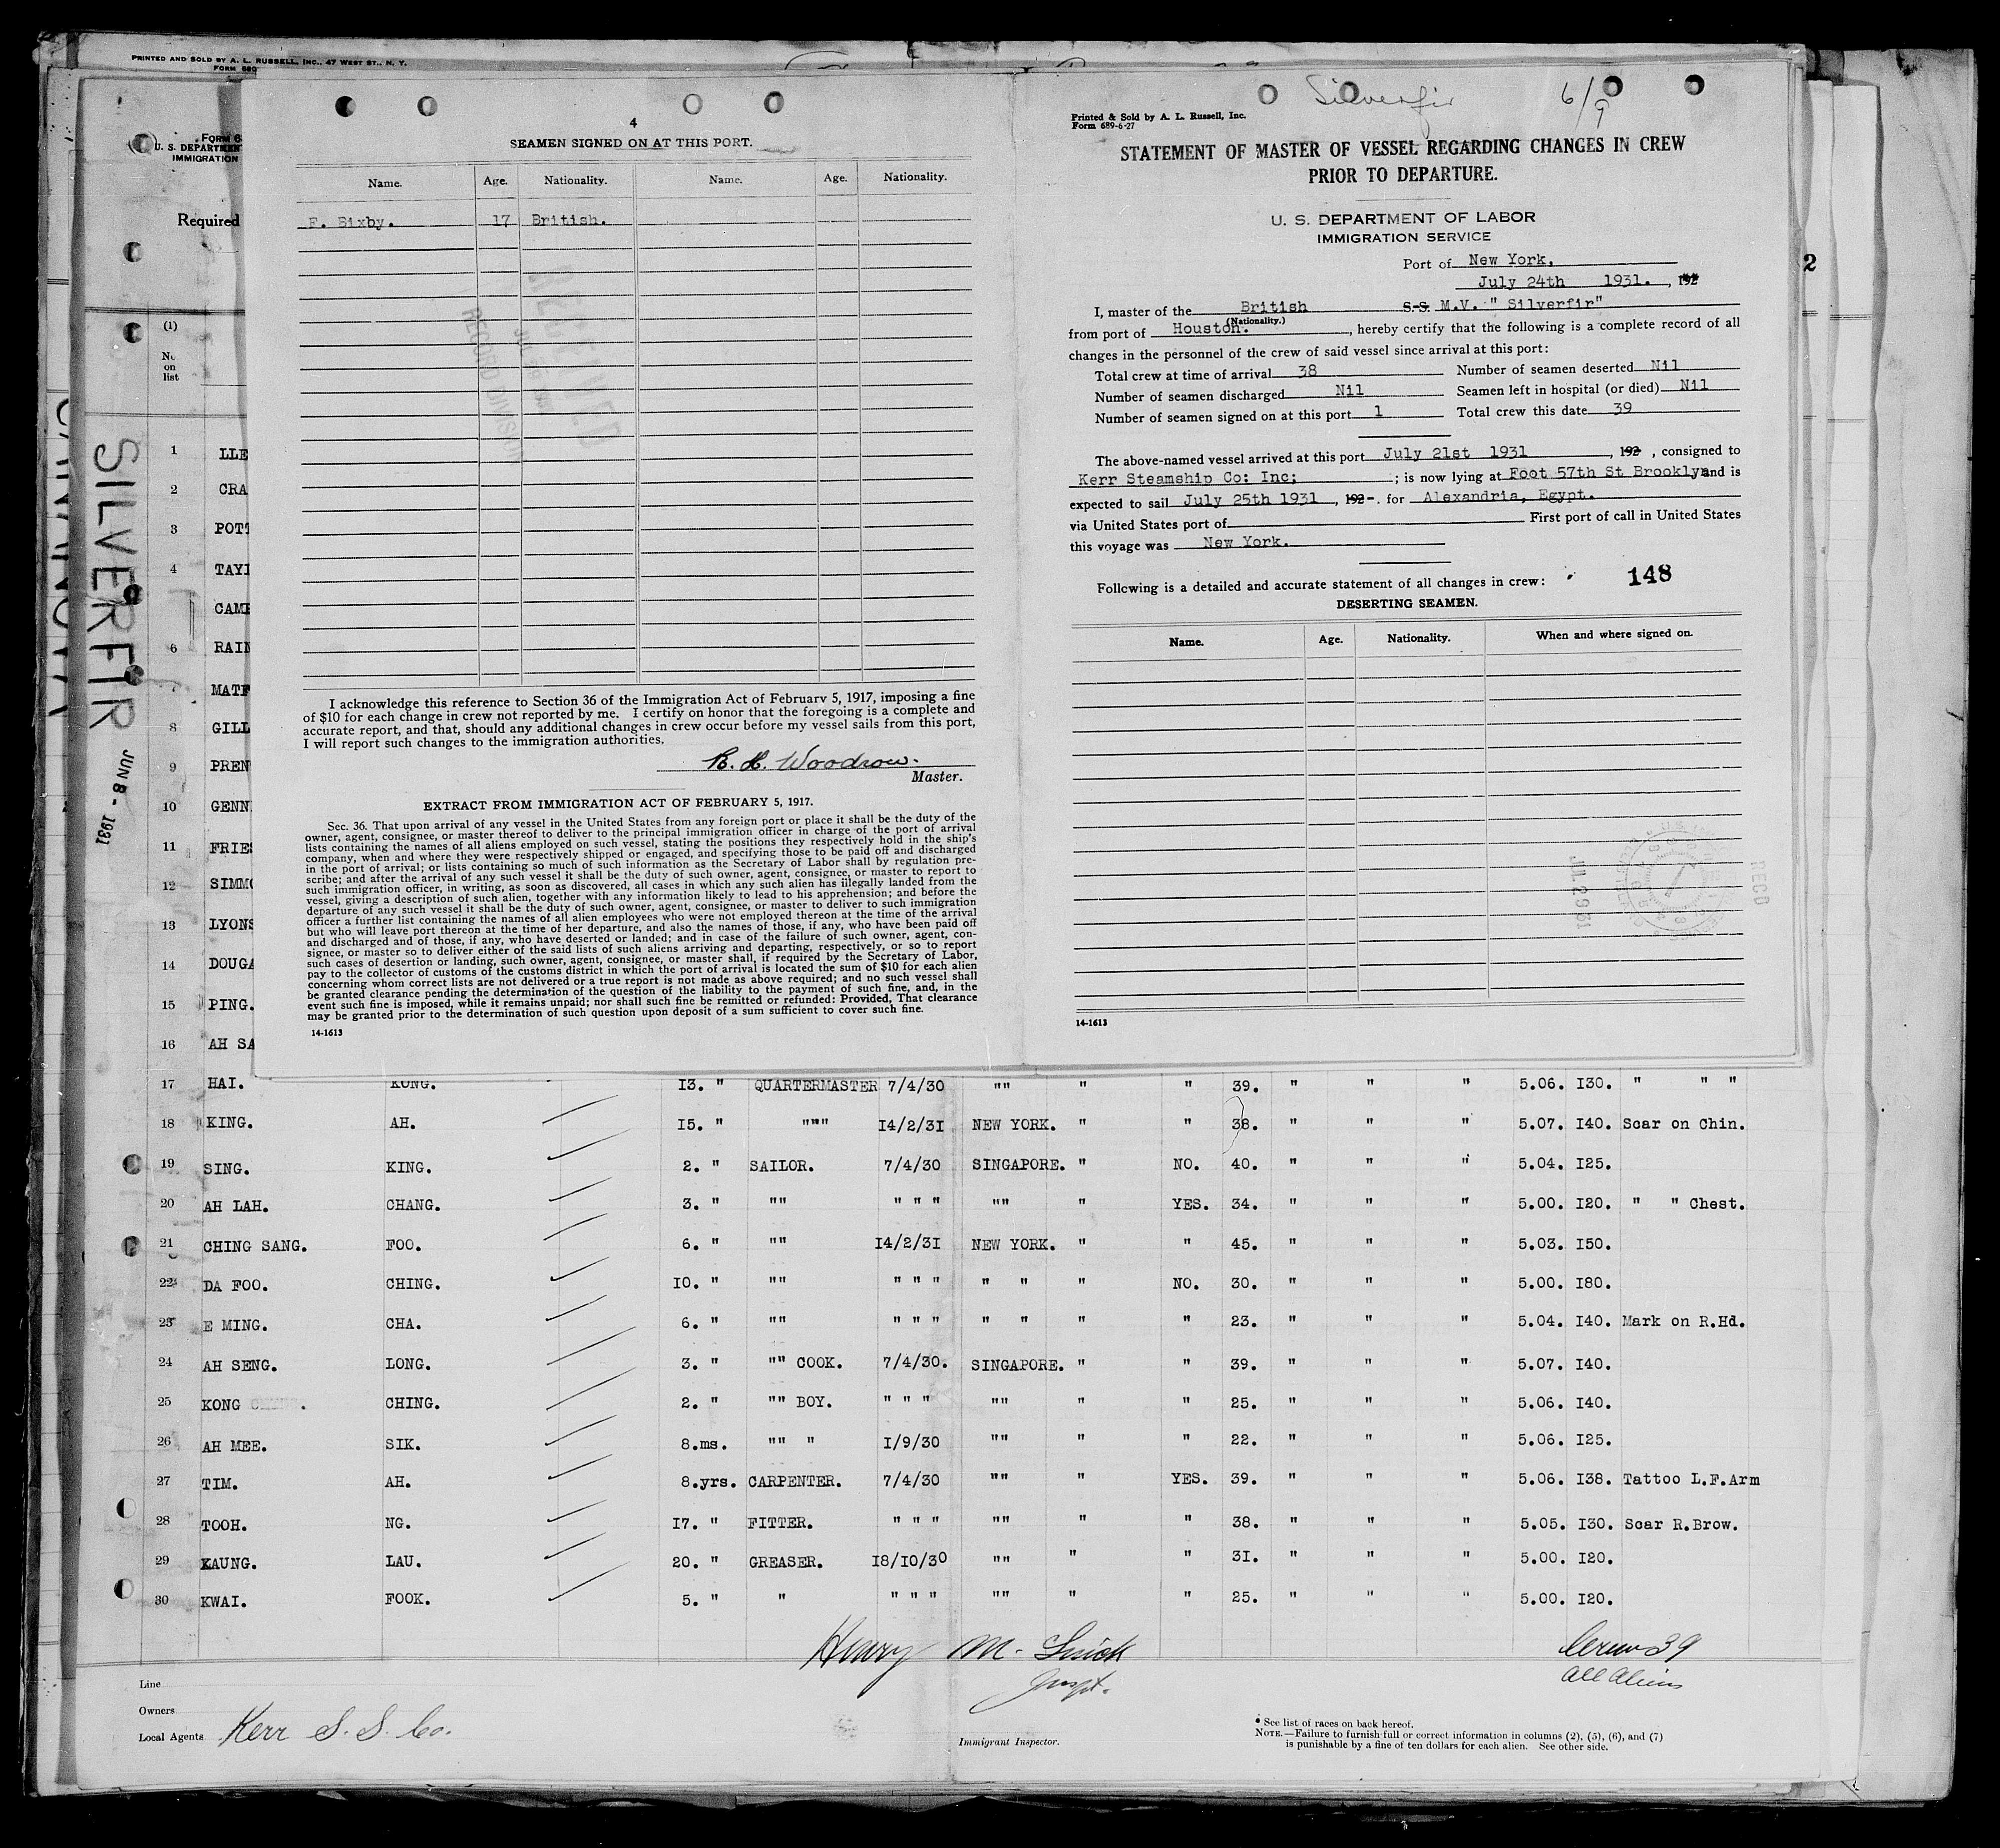 PRINTED AND SOLD BY A. L. RUSSELL, INC., 47 WEST ST., N. Y.
FORM 680
U. S. DEPARTMEN
IMMIGRATION
Required
(1)
No
on
list
SILVERFIR
JUN 8 - 1931
1 LLE
2 CRA
3 POT
4 TAYI
CAME
6 RAIN
7 MATH
8 GILL
9 PREN
10 GENN
11 FRIE
12 SIMMO
13 LYONS
14 DOUGA
15 PING.
16 AH SA
4
SEAMEN SIGNED ON AT THIS PORT.
Name. Age. Nationality. Name. Age. Nationality.
F. Bixby. 17 British.
RECEIVED
RECORD DIVISION
I acknowledge this reference to Section 36 of the Immigration Act of February 5, 1917, imposing a fine
of $10 for each change in crew not reported by me. I certify on honor that the foregoing is a complete and
accurate report, and that, should any additional changes in crew occur before my vessel sails from this port,
I will report such changes to the immigration authorities.
R. H. Woodrow.
Master.
EXTRACT FROM IMMIGRATION ACT OF FEBRUARY 5, 1917.
Sec. 36. That upon arrival of any vessel in the United States from any foreign port or place it shall be the duty of the
owner, agent, consignee, or master thereof to deliver to the principal immigration officer in charge of the port of arrival
lists containing the names of all aliens employed on such vessel, stating the positions they respectively hold in the ship's
company, when and where they were respectively shipped or engaged, and specifying those to be paid off and discharged
in the port of arrival; or lists containing so much of such information as the Secretary of Labor shall by regulation pre-
scribe; and after the arrival of any such vessel it shall be the duty of such owner, agent, consignee, or master to report to
such immigration officer, in writing, as soon as discovered, all cases in which any such alien has illegally landed from the
vessel, giving a description of such alien, together with any information likely to lead to his apprehension; and before the
departure of any such vessel it shall be the duty of such owner, agent, consignee, or master to deliver to such immigration
officer a further list containing the names of all alien employees who were not employed thereon at the time of the arrival
but who will leave port thereon at the time of her departure, and also the names of those, if any, who have been paid off
and discharged and of those, if any, who have deserted or landed; and in case of the failure of such owner, agent, con-
signee, or master so to deliver either of the said lists of such aliens arriving and departing, respectively, or so to report
such cases of desertion or landing, such owner, agent, consignee, or master shall, if required by the Secretary of Labor,
pay to the collector of customs of the customs district in which the port of arrival is located the sum of $10 for each alien
concerning whom correct lists are not delivered or a true report is not made as above required; and no such vessel shall
be granted clearance pending the determination of the question of the liability to the payment of such fine, and, in the
event such fine is imposed, while it remains unpaid; nor shall such fine be remitted or refunded: Provided, That clearance
may be granted prior to the determination of such question upon deposit of a sum sufficient to cover such fine.
14-1613
Silverfir 6/9
Printed & Sold by A. L. Russell, Inc.
Form 689-6-27
STATEMENT OF MASTER OF VESSEL REGARDING CHANGES IN CREW
PRIOR TO DEPARTURE.
U. S. DEPARTMENT OF LABOR
IMMIGRATION SERVICE
Port of New York,
July 24th 1931. , 192
2
I, master of the British S.S. M.V. " Silverfir"
(Nationality.)
from port of Houston. , hereby certify that the following is a complete record of all
changes in the personnel of the crew of said vessel since arrival at this port:
Total crew at time of arrival 38 Number of seamen deserted Nil
Number of seamen discharged Nil Seamen left in hospital (or died) Nil
Number of seamen signed on at this port 1 Total crew this date 39
The above-named vessel arrived at this port July 21st 1931 , 192 , consigned to
Kerr Steamship Co: Inc; ; is now lying at Foot 57th St Brooklyn and is
expected to sail July 25th 1931 , 192-. for Alexandria, Egypt.
via United States port of First port of call in United States
this voyage was New York.
Following is a detailed and accurate statement of all changes in crew: 148
DESERTING SEAMEN.
Name. Age. Nationality. When and where signed on.
RECD
14-1613
17 HAI. KONG. 13. " QUARTERMASTER 7/4/30 "" " " 39. " " " 5.06. I30. " " "
18 KING. AH. 15. " """ 14/2/31 NEW YORK. " " 38. " " " 5.07. I40. Scar on Chin.
19 SING. KING. 2. " SAILOR. 7/4/30 SINGAPORE. " NO. 40. " " " 5.04. I25.
20 AH LAH. CHANG. 3. " "" " " " "" " YES. 34. " " " 5.00. I20. " " Chest.
21 CHING SANG. FOO. 6. " "" 14/2/31 NEW YORK. " " 45. " " " 5.03. I50.
22 DA FOO. CHING. 10. " "" " " " " " " NO. 30. " " " 5.00. I80.
23 E MING. CHA. 6. " "" " " " " " " " 23. " " " 5.04. I40. Mark on R.Hd.
24 AH SENG. LONG. 3. " "" COOK. 7/4/30. SINGAPORE. " " 39. " " " 5.07. I40.
25 KONG . CHING. 2. " "" BOY. " " " "" " " 25. " " " 5.06. I40.
26 AH MEE. SIK. 8.ms. "" " 1/9/30 "" " " 22. " " " 5.06. I25.
27 TIM. AH. 8.yrs. CARPENTER. 7/4/30 "" " YES. 39. " " " 5.06. I38. Tattoo L.F.Arm
28 TOOH. NG. 17. " FITTER. " " " "" " " 38. " " " 5.05. I30. Scar R.Brow.
29 KAUNG. LAU. 20. " GREASER. 18/10/30 "" " " 31. " " " 5.00. I20.
30 KWAI. FOOK. 5. " " " " " "" " " 25. " " " 5.00. I20.
Henry M. Quick Crew 39
Inspt. All Aliens
Line
Owners
Local Agents Kerr S. S. Co.
Immigrant Inspector.
* See list of races on back hereof.
NOTE.—Failure to furnish full or correct information in columns (2), (5), (6), and (7)
is punishable by a fine of ten dollars for each alien. See other side.